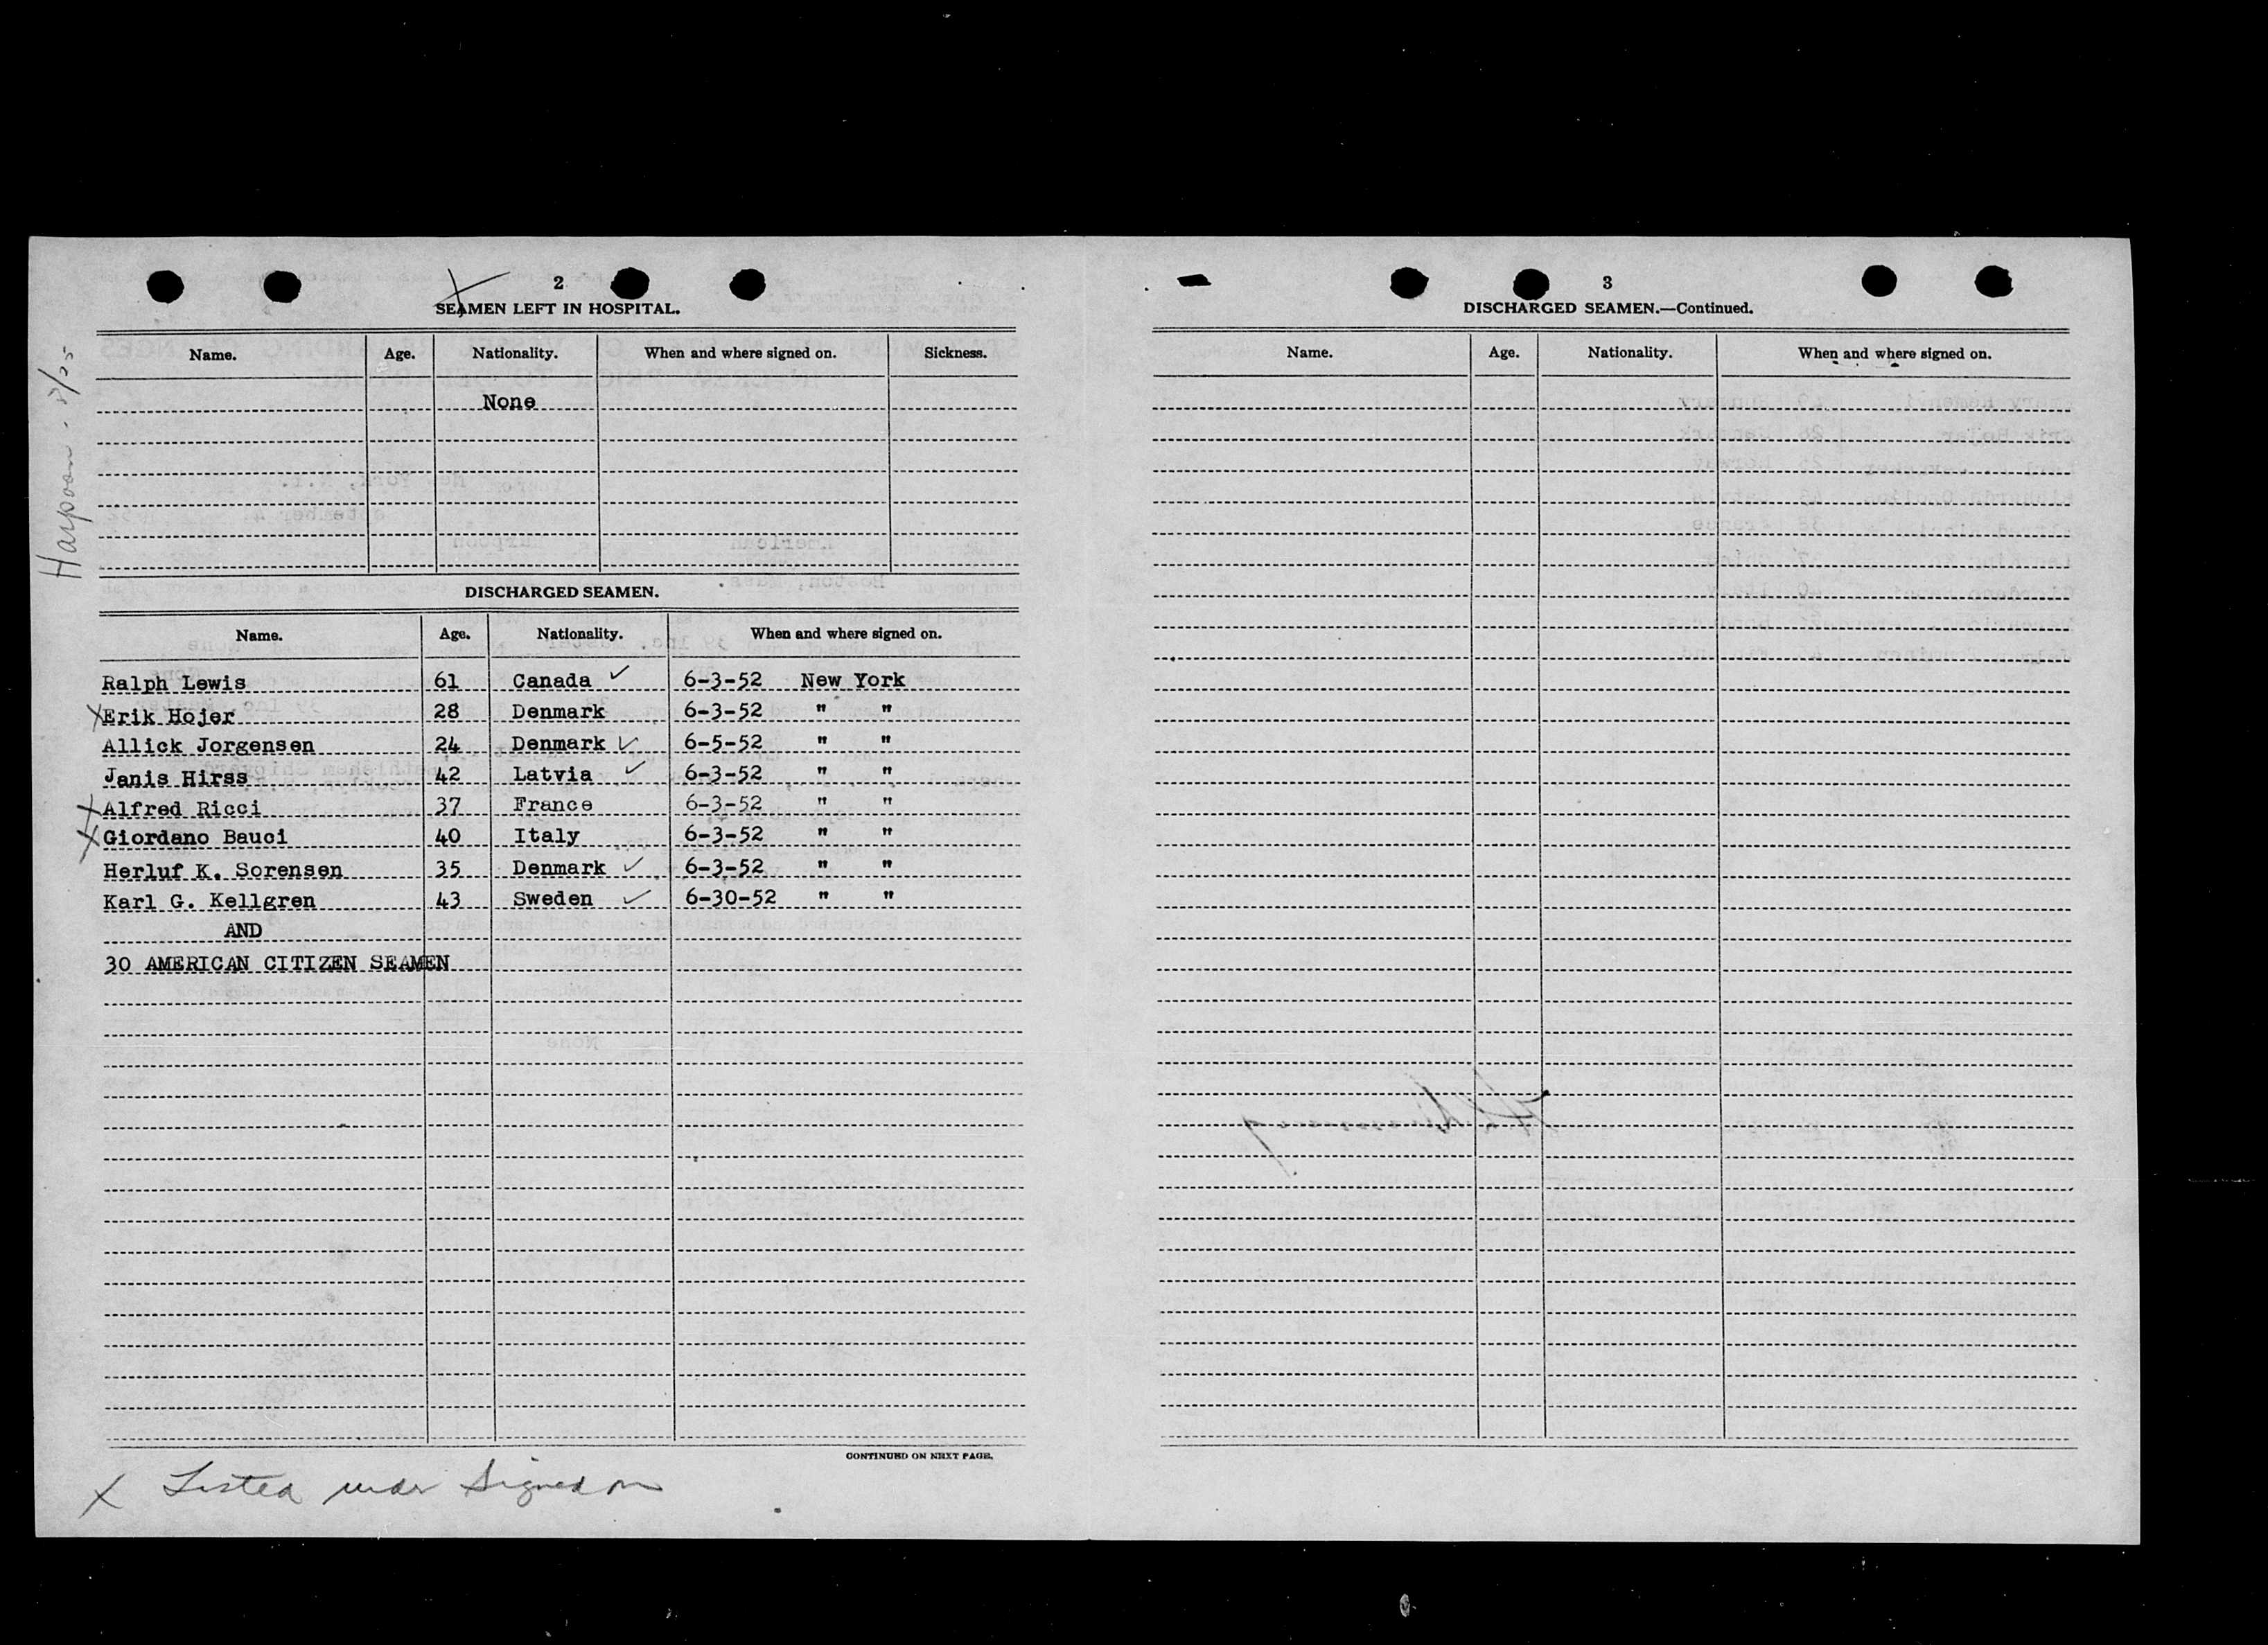 Harpoon
2
SEAMEN LEFT IN HOSPITAL.
Name. Age. Nationality. When and where signed on. Sickness.
None
DISCHARGED SEAMEN.
Name. Age. Nationality. When and where signed on.
Ralph Lewis 61 Canada ✓ 6-3-52 New York
X Erik Hojer 28 Denmark 6-3-52 " "
Allick Jorgensen 24 Denmark ✓ 6-5-52 " "
Janis Hirss 42 Latvia ✓ 6-3-52 " "
X Alfred Ricci 37 France 6-3-52 " "
X Giordano Bauci 40 Italy 6-3-52 " "
Herluf K. Sorensen 35 Denmark ✓ 6-3-52 " "
Karl G. Kellgren 43 Sweden ✓ 6-30-52 " "
AND
30 AMERICAN CITIZEN SEAMEN
CONTINUED ON NEXT PAGE.
X Listed under Signed on
3
DISCHARGED SEAMEN.—Continued.
Name. Age. Nationality. When and where signed on.